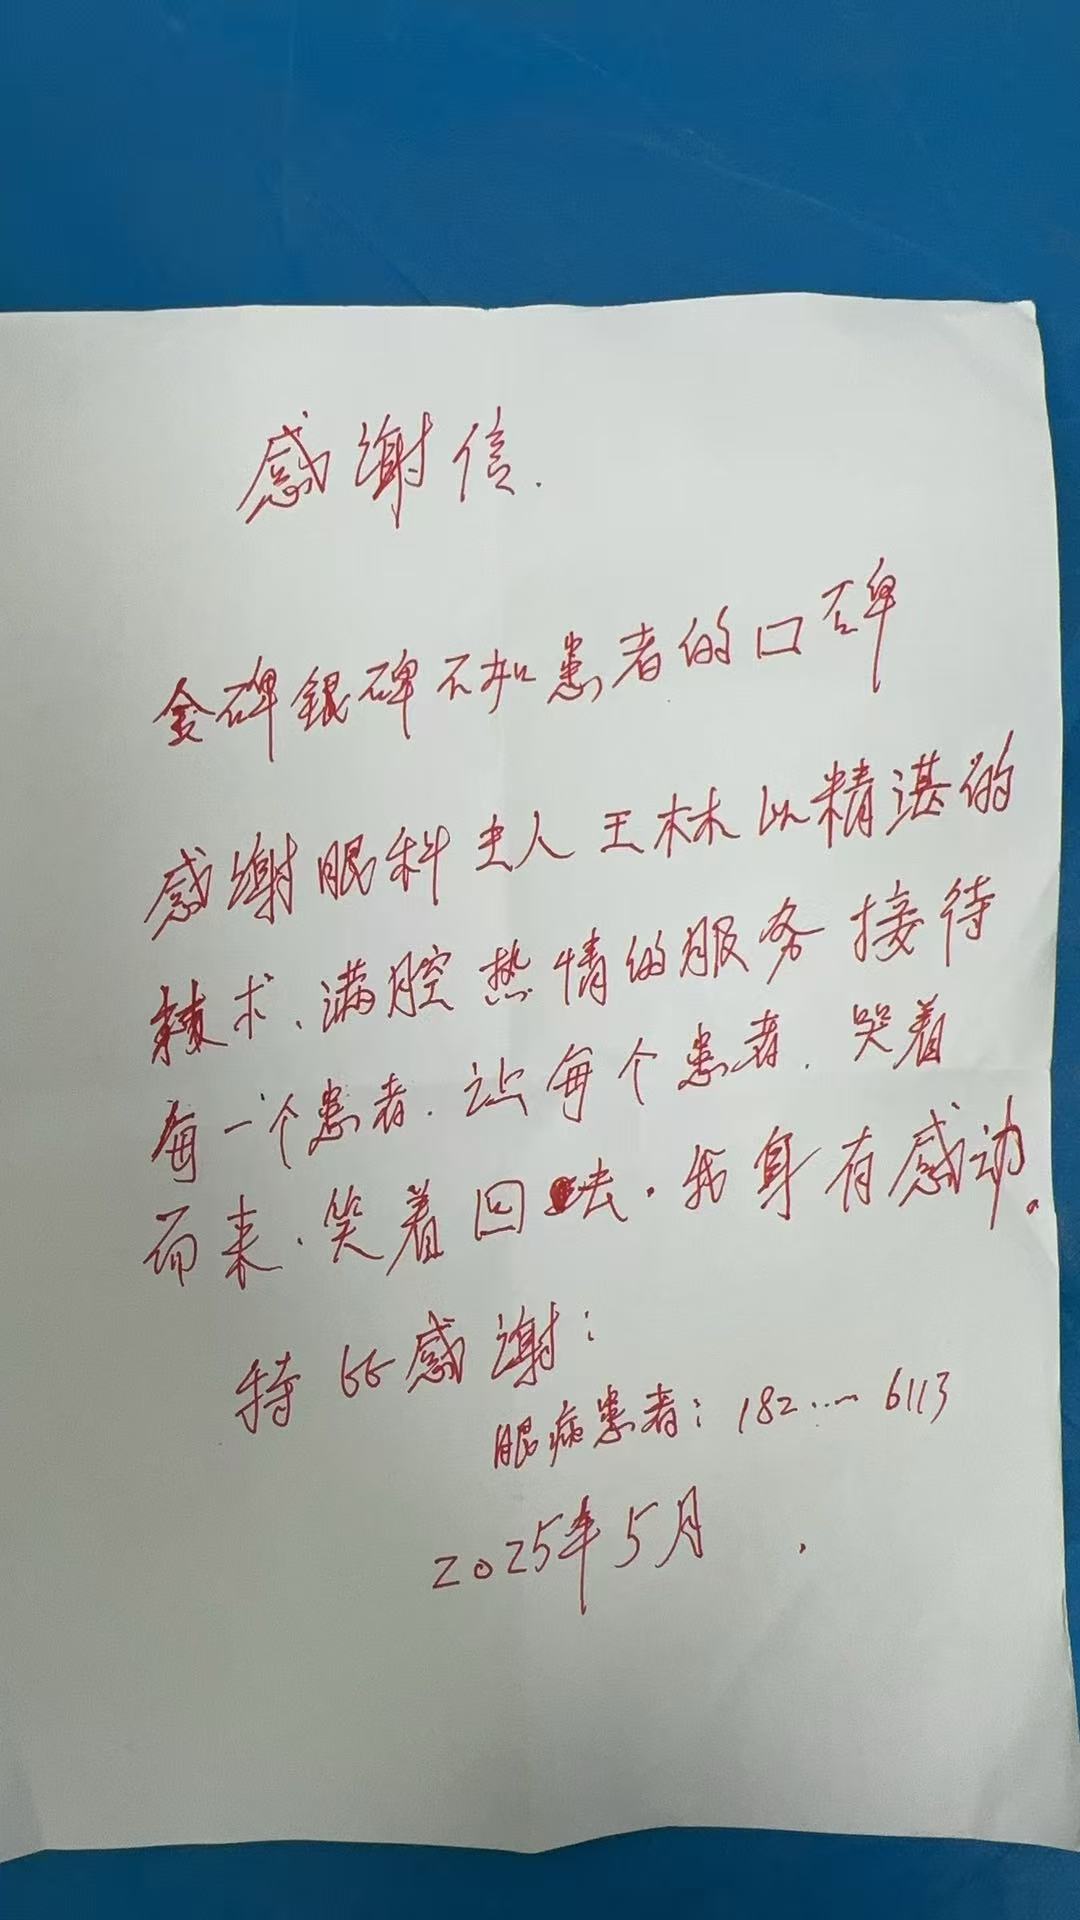 感谢信.
金碑银碑不如患者的口碑
感谢眼科主人王林以精湛的
术、满腔热情的服务接待
每一个患者.让每个患者.哭着
而来.笑着回去.我身有感动。
特此感谢:
眼病患者:182……6113
2025年5月.